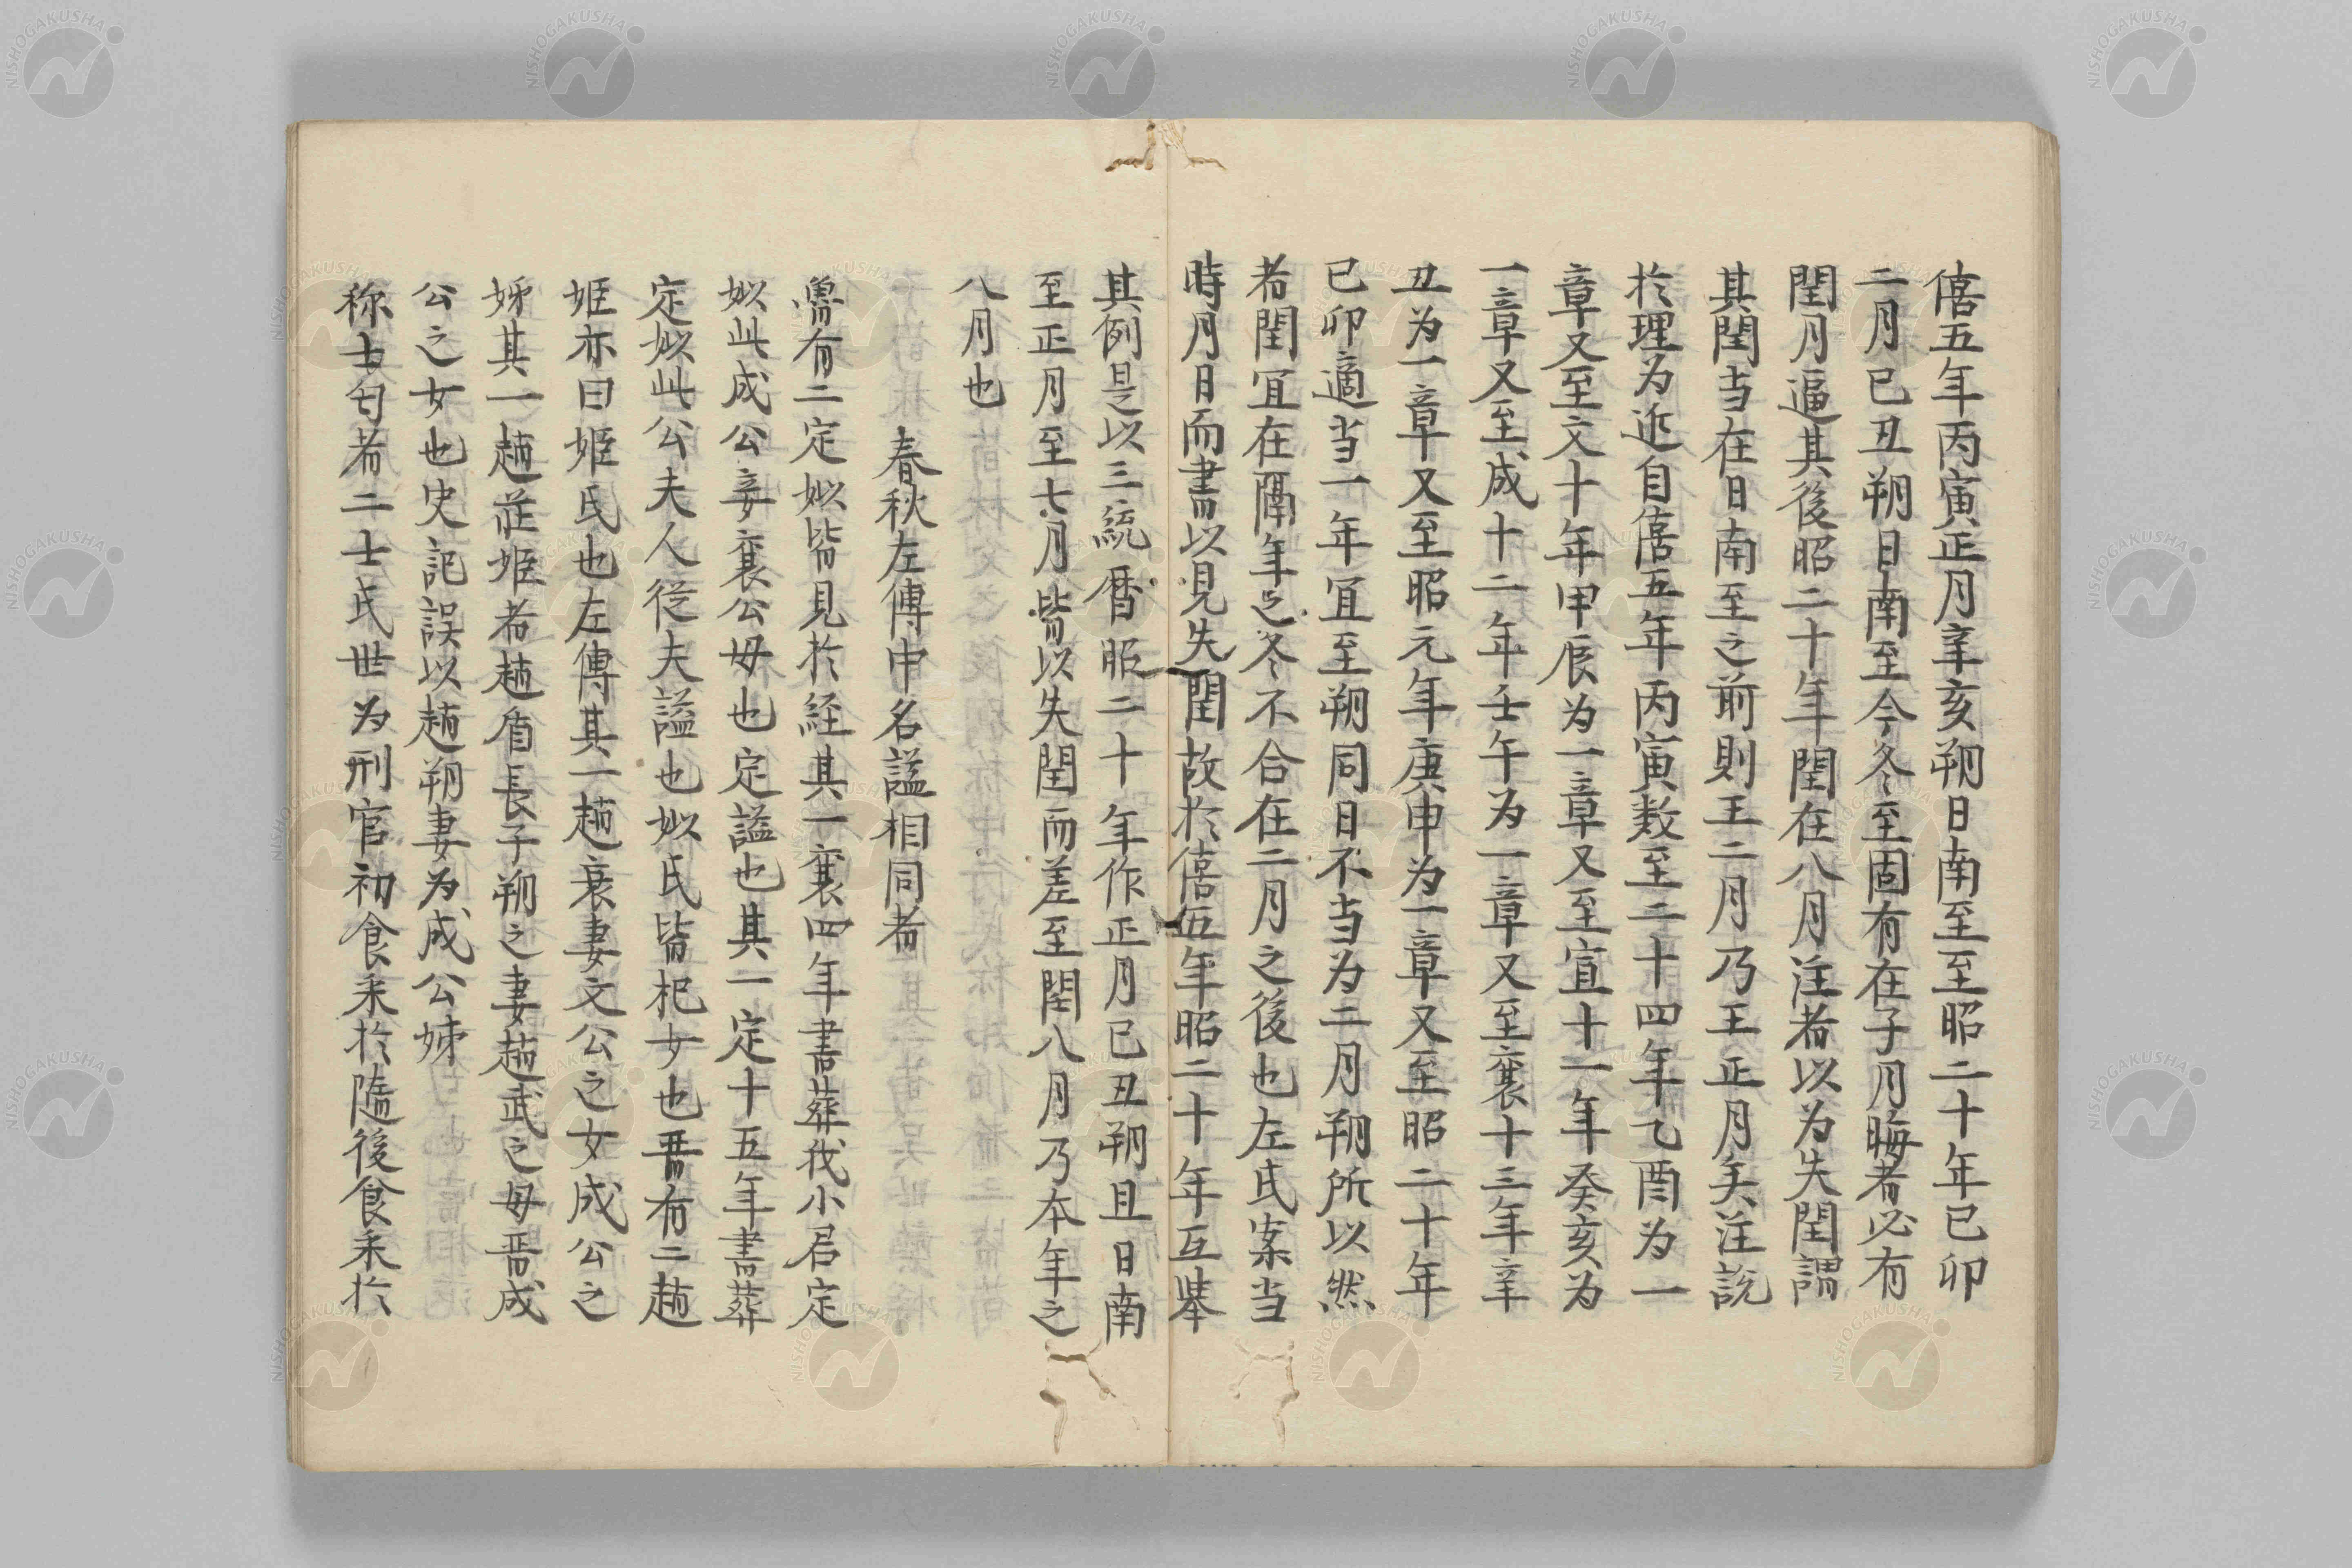 僖五年丙寅正月辛亥朔日南至至昭二十年已卯
二月已丑朔日南至今冬至固有在子月晦者必有
閏月逼其後昭二十年閏在八月注者以为失閏謂
其閏当在日南至之前則王二月乃王正月矣注説
於理为近自僖五年丙寅数至二十四年乙酉为一
章又至文十年甲辰为一章又至宣十一年癸亥为
一章又至成十二年壬午为一章又至襄十三年辛
丑为一章又至昭元年庚申为一章又至昭二十年
已卯適当一年冝至朔同日不当为二月朔所以然
者閏冝在隔年之冬不合在二月之後也左氏案当
時月日而書以見失閏故於僖五年昭二十年互挙
其例是以三統暦昭二十年作正月已丑朔且日南
至正月至七月皆以失閏而差至閏八月乃本年之
八月也
春秋左傳中名謚相同者
魯有二定姒皆見於経其一襄四年書葬我小君定
姒此成公妾襄公母也定謚也其一定十五年書葬
定姒此公夫人従夫謚也姒氏皆杞女也晋有二趙
姬亦曰姬氏也左傳其一趙衰妻文公之女成公之
姊其一趙莊姬者趙盾長子朔之妻趙武之母晋成
公之女也史記誤以趙朔妻为成公姊
称士匄者二士氏世为刑官初食采於隨後食采於